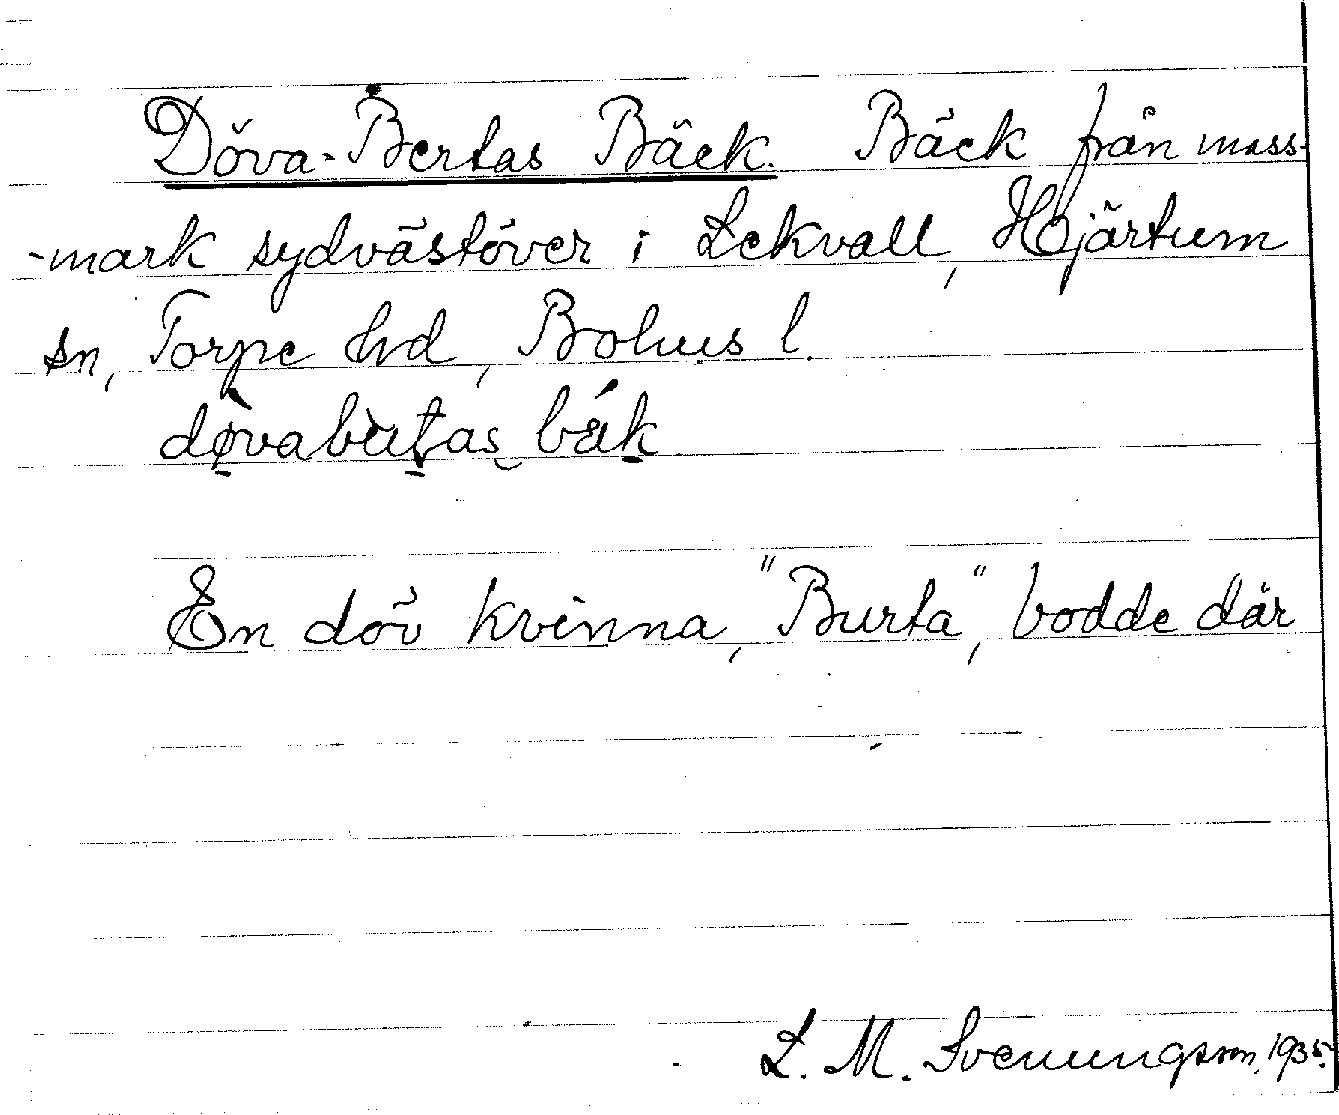 Döva-Bertas Bäck. Bäck från moss-
-mark sydvästöver i Lekvall, Hjärtum
sn, Torpe hd, Bohus l.
En döv kvinna, "Burta", bodde där
L. M. Svenungsson, 1935.